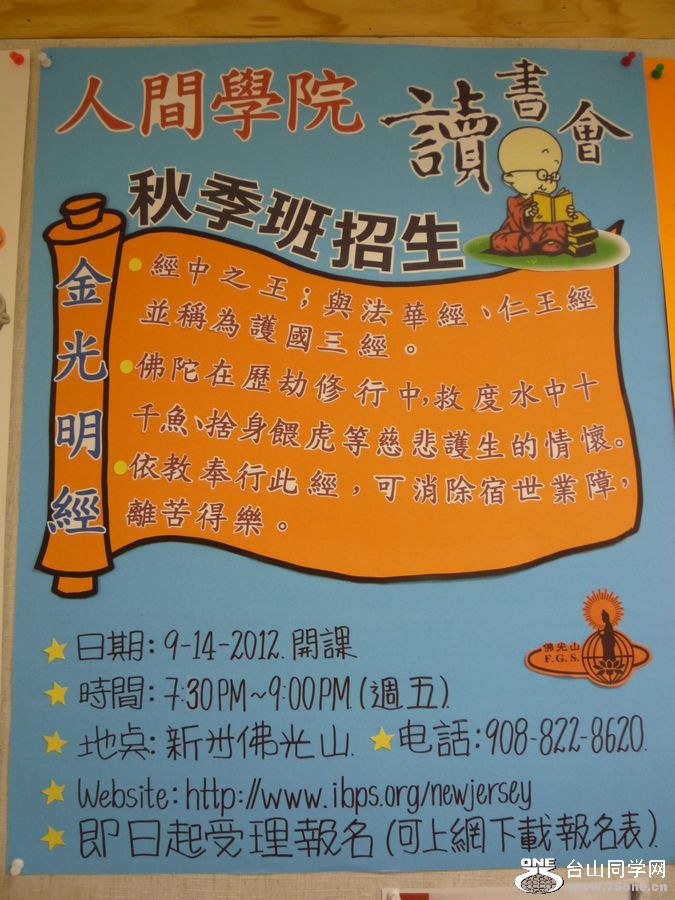 人間學院
讀書會
秋季班招生
金光明經
經中之王；與法華經、仁王經
並稱為護國三經。
佛陀在歷劫修行中，救度水中十
千魚、捨身餵虎等慈悲護生的情懷。
依教奉行此經，可消除宿世業障，
離苦得樂。
佛光山
F.G.S.
日期：9-14-2012. 開課
時間：7:30PM~9:00PM.(週五).
地点：新州佛光山. 电話：908-822-8620.
Website：http://www.ibps.org/newjersey
即日起受理報名(可上網下載報名表).
ONE 台山同学网
www.75one.cn